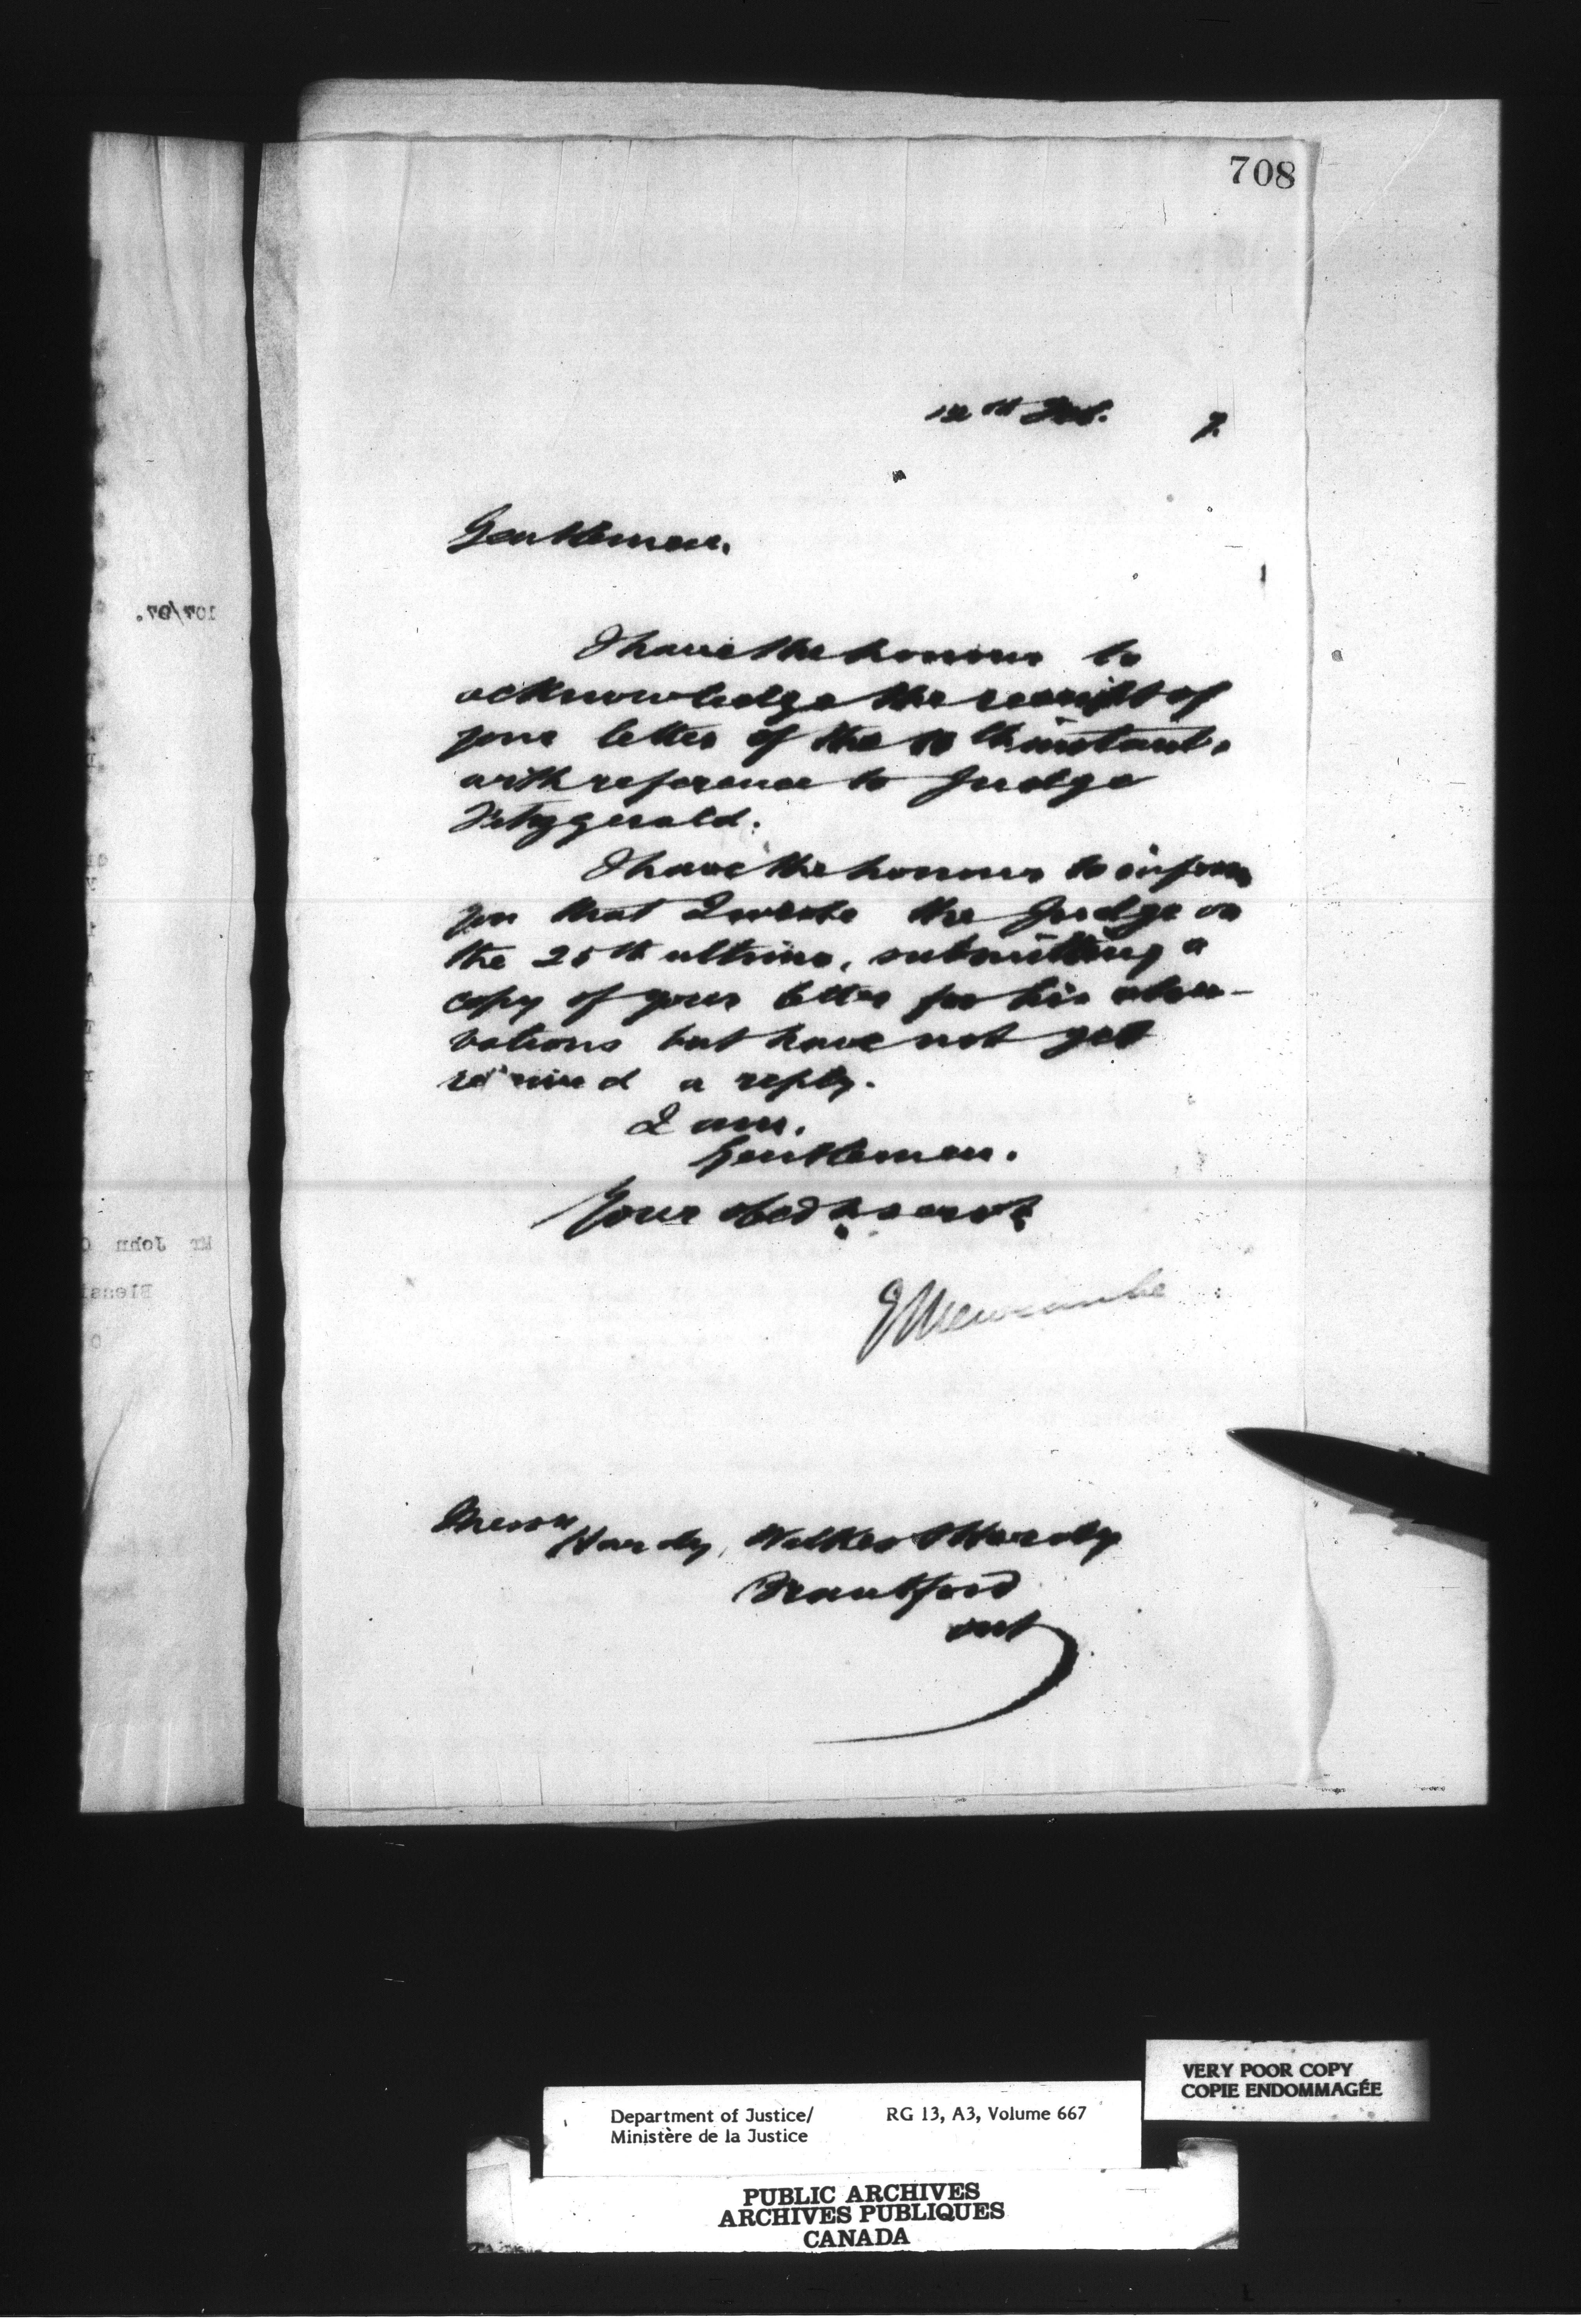 708
12th Feb. 7.
Gentlemen,
I have the honour to
acknowledge the receipt of
your letter of the 10th instant,
with reference to Judge
Fitzgerald.
I have the honour to inform
you that I wrote the Judge on
the 25th ultimo, submitting a
copy of your letter for his obser-
vations but have not yet
received a reply.
I am,
Gentlemen.
Your obedt servt
Newcombe
Messrs
Hardy, Wilkes & Hardy
Brantford
Ont
107/97.
Mr John
VERY POOR COPY
COPIE ENDOMMAGÉE
Department of Justice/
Ministère de la Justice
RG 13, A3, Volume 667
PUBLIC ARCHIVES
ARCHIVES PUBLIQUES
CANADA